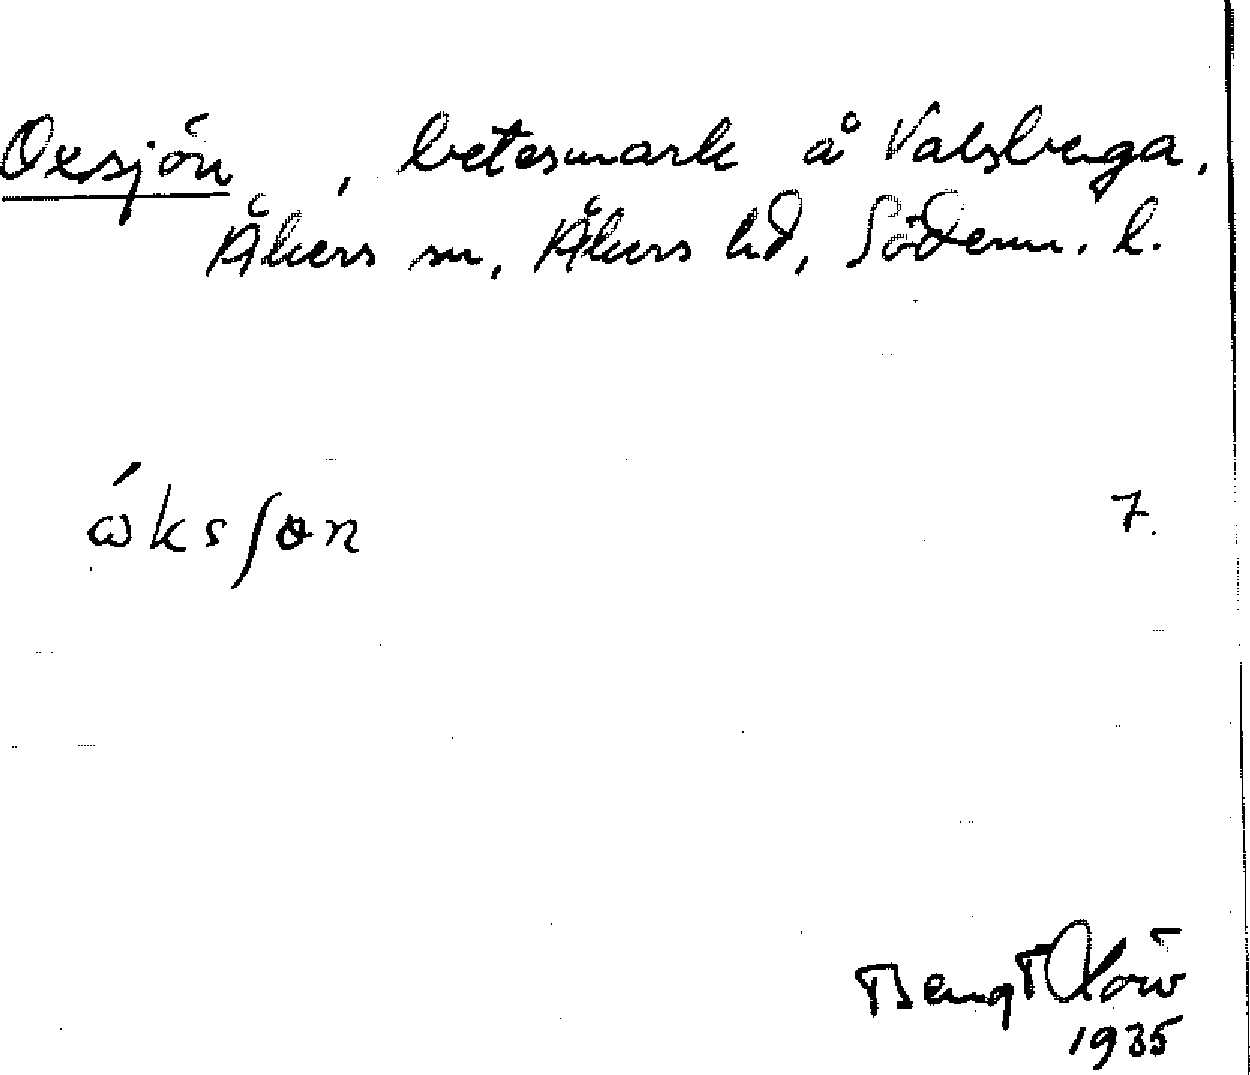 Oxsjön, betesmark å Valsberga,
Åkers sn, Åkers hd, Söderm. l.
ώksʃɵn 7.
Bengt
1935